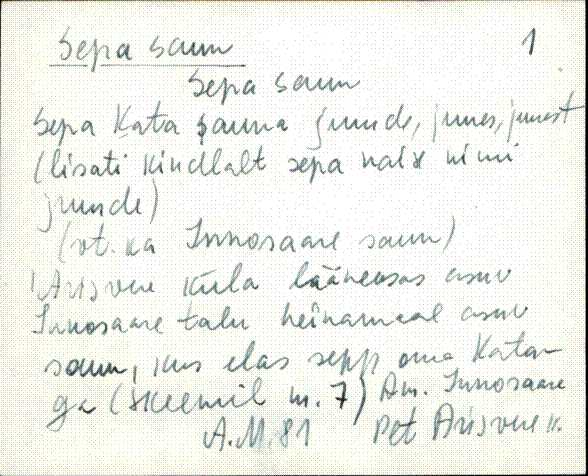 Sepa saun 1
Sepa saun
Sepa Kata sauna juude, juures, juurest
(lisati kindlalt sepa naise nimi
juurde)
(vt. ka Innosaare saun)
Arisvere küla lääneosas asuv
Innosaare talu heinamaal asuv
saun, kus elas sepp oma Kata-
ga (skeemil nr. 7) Am. Innosaare
A.M. 81 Plt Arisvere k.